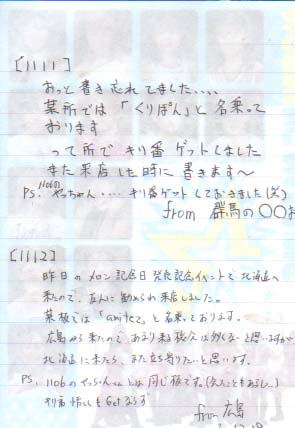 [1111]
おっと書き忘れてました....
某所では「くりぽん」と名乗って
おります
って所でキリ番ゲットしました
また来店した時に書きます〜
PS. 1106の やっちゃん....キリ番ゲットしておきました(笑)
from 群馬の〇〇
[1112]
昨日のメロン記念日発売記念イベントで北海道へ
来たので、友人に勧められ来店しました。
某板では「 」と名乗っております。
広島から来たので、あまり来る機会は少ないと思いますが
北海道に来たら、また立ち寄りたいと思います。
PS. 1106の さんとは同じ板です。
Getならず
from 広島